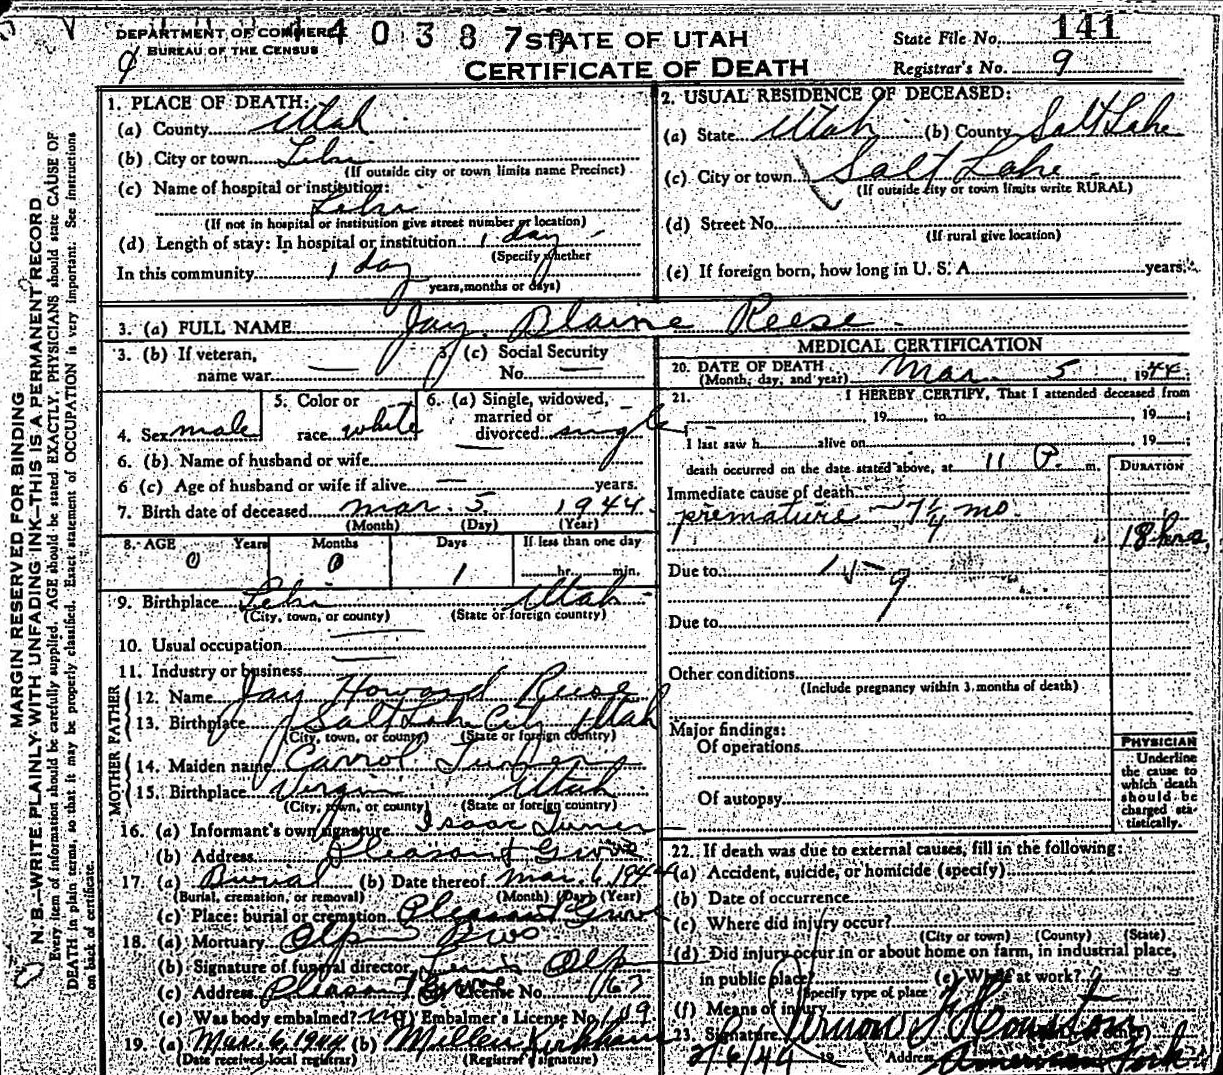 DEPARTMENT OF COMMERCE
BUREAU OF THE CENSUS
4 0 3 8 7
STATE OF UTAH
CERTIFICATE OF DEATH
State File No. 141
Registrar's No. 9
MARGIN RESERVED FOR BINDING
N. B.—WRITE PLAINLY WITH UNFADING INK—THIS IS A PERMANENT RECORD
Every item of information should be carefully supplied. AGE should be stated EXACTLY. PHYSICIANS should state CAUSE OF
DEATH in plain terms, so that it may be properly classified. Exact statement of OCCUPATION is very important. See instructions
on back of certificate.
1. PLACE OF DEATH:
(a) County Utah
(b) City or town Lehi
(If outside city or town limits name Precinct)
(c) Name of hospital or institution:
Lehi
(If not in hospital or institution give street number or location)
(d) Length of stay: In hospital or institution 1 day
(Specify whether
In this community 1 day
years, months or days)
2. USUAL RESIDENCE OF DECEASED:
(a) State Utah (b) County Salt Lake
(c) City or town Salt Lake
(If outside city or town limits write RURAL)
(d) Street No.
(If rural give location)
(e) If foreign born, how long in U. S. A. years.
3. (a) FULL NAME Jay Blaine Reese
3. (b) If veteran,
name war
3. (c) Social Security
No.
4. Sex male
5. Color or
race white
6. (a) Single, widowed,
married or
divorced single
6. (b) Name of husband or wife
6 (c) Age of husband or wife if alive — years.
7. Birth date of deceased Mar. 5 1944
(Month) (Day) (Year)
8. AGE Years Months Days If less than one day
0 0 1 hr. min.
9. Birthplace Lehi Utah
(City, town, or county) (State or foreign country)
10. Usual occupation
11. Industry or business
FATHER
12. Name Jay Howard Reese
13. Birthplace Salt Lake City Utah
(City, town, or county) (State or foreign country)
MOTHER
14. Maiden name Carrol
15. Birthplace Virgin Utah
(City, town, or county) (State or foreign country)
16. (a) Informant's own signature Isaac Turner
(b) Address Pleasant Grove
17. (a) Burial (b) Date thereof Mar. 6, 1944
(Burial, cremation, or removal) (Month) (Day) (Year)
(c) Place: burial or cremation Pleasant Grove
18. (a) Mortuary Olpin Bros
(b) Signature of funeral director Olpin
(c) Address Pleasant Grove License No. 167
(e) Was body embalmed? Embalmer's License No.
19. (a) Mar. 6, 1944 (b) Kirkham
(Date received local registrar) (Registrar's signature)
MEDICAL CERTIFICATION
20. DATE OF DEATH
(Month, day, and year) Mar 5 1944
21. I HEREBY CERTIFY, That I attended deceased from
19 to 19 ;
I last saw h alive on 19 ;
death occurred on the date stated above, at 11 P. m.
DURATION
Immediate cause of death
premature - 7 1/4 mo. 18 hrs.
Due to 159
Due to
Other conditions
(Include pregnancy within 3 months of death)
Major findings:
Of operations
Of autopsy
PHYSICIAN
Underline
the cause to
which death
should be
charged sta-
tistically.
22. If death was due to external causes, fill in the following:
(a) Accident, suicide, or homicide (specify)
(b) Date of occurrence
(c) Where did injury occur?
(City or town) (County) (State)
(d) Did injury occur in or about home on farm, in industrial place,
in public place? (e) While at work?
Specify type of place
(f) Means of injury
23. Signature Vernon F Houston
/6/44 19 Address American Fork